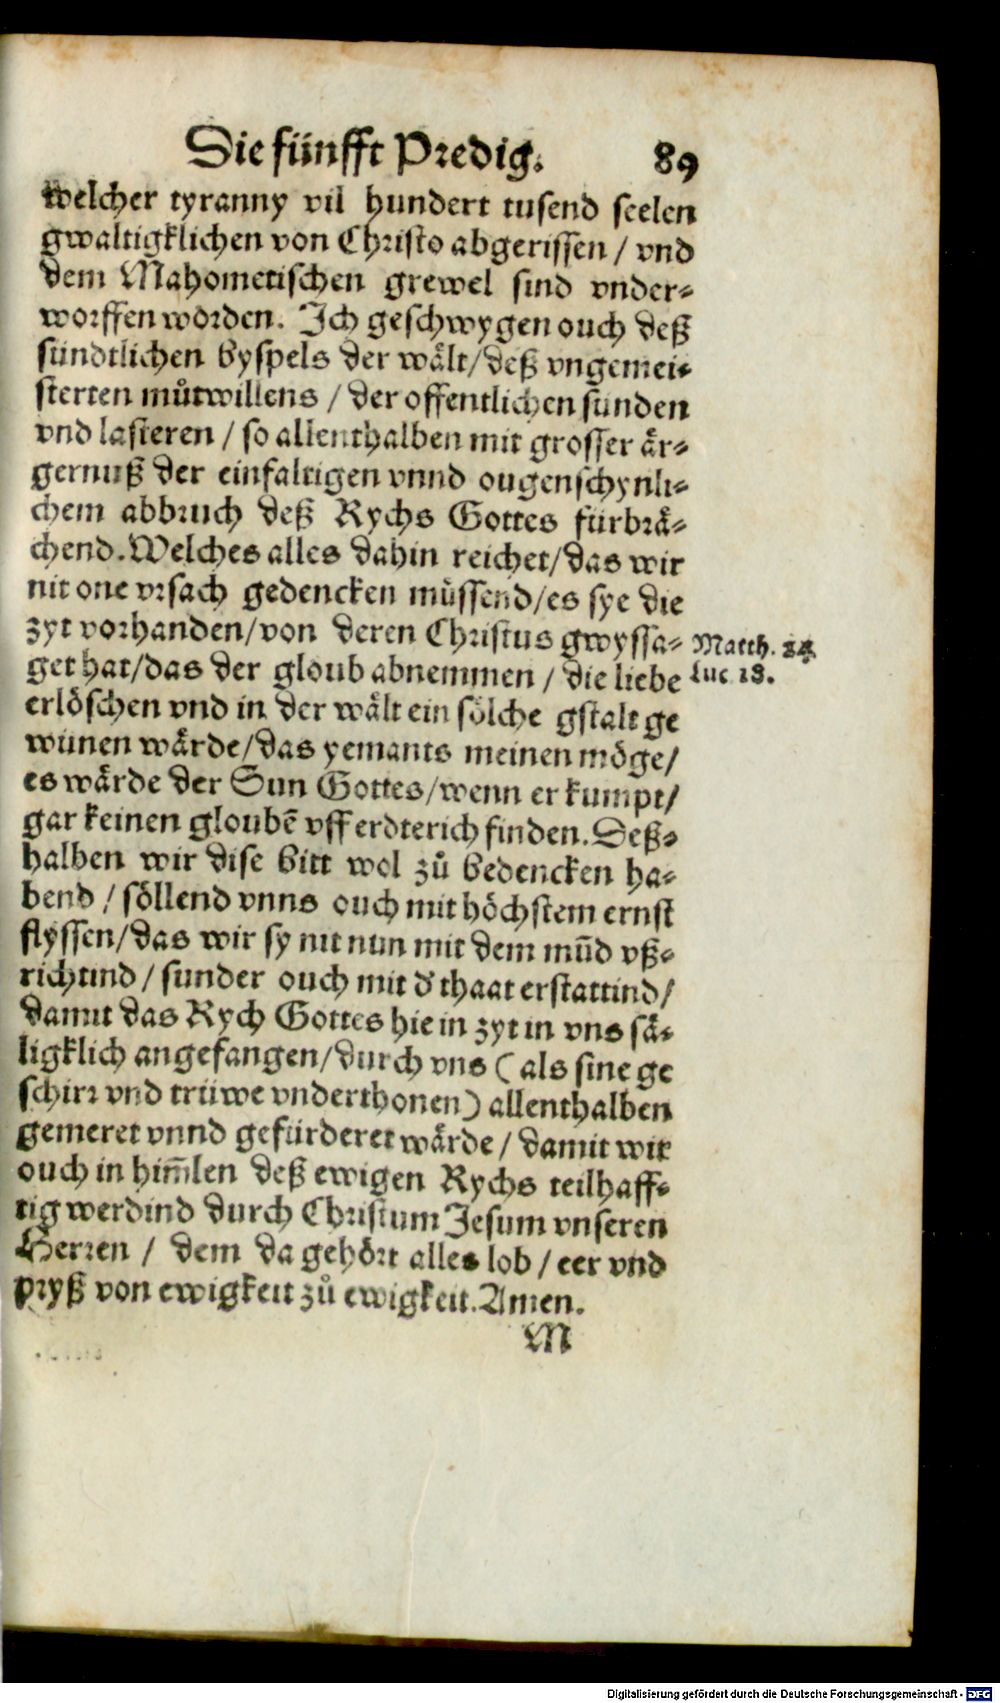 Die fünfft Predig. 89
welcher tyranny vil hundert tusend seelen
gwaltigklichen von Christo abgerissen / vnd
dem Mahometischen grewel sind vnder⸗
worffen worden. Ich geschwygen ouch deß
sündtlichen byspels der wält / deß vngemei⸗
sterten můtwillens / der offentlichen sünden
vnd lasteren / so allenthalben mit grosser är⸗
gernuß der einfaltigen vnnd ougenschynli⸗
chem abbruch deß Rychs Gottes fürbrä⸗
chend. Welches alles dahin reichet / das wir
nit one vrsach gedencken müssend / es sye die
zyt vorhanden / von deren Christus gwyssa⸗
get hat / das der gloub abnemmen / die liebe
Matth. 24.
Luc 18.
erlöschen vnd in der wält ein sölche gstalt ge
wünen wärde / das yemants meinen möge /
es wärde der Sun Gottes / wenn er kumpt /
gar keinen gloubē vff erdterich finden. Deß⸗
halben wir dise bitt wol zů bedencken ha⸗
bend / söllend vnns ouch mit höchstem ernst
flyssen / das wir sy nit nun mit dem mūd vß⸗
richtind / sunder ouch mit d' thaat erstattind /
damit das Rych Gottes hie in zyt in vns sä⸗
ligklich angefangen / durch vns ( als sine ge
schirr vnd trüwe vnderthonen ) allenthalben
gemeret vnnd gefürderet wärde / damit wir
ouch in him̄len deß ewigen Rychs teilhaff⸗
tig werdind durch Christum Jesum vnseren
Herren / dem da gehört alles lob / eer vnd
pryß von ewigkeit zů ewigkeit. Amen.
M
Digitalisierung gefördert durch die Deutsche Forschungsgemeinschaft - DFG